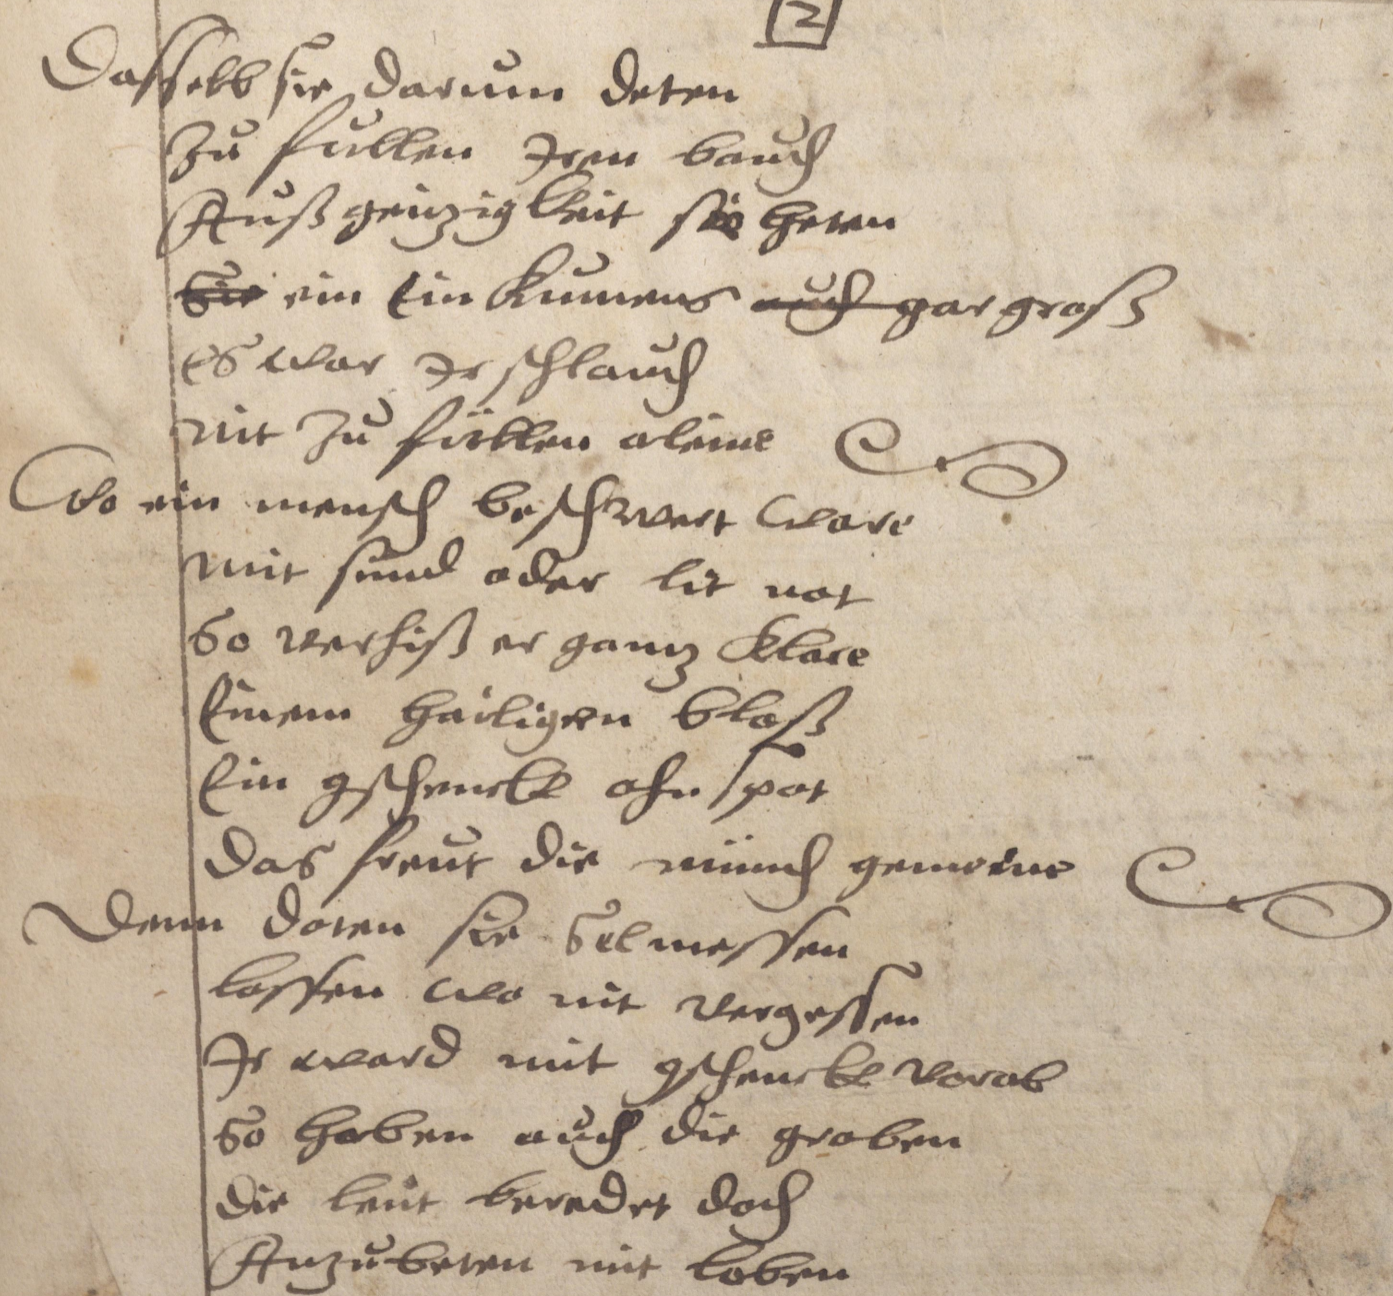 2
Dasselb sie darum deten
Zu fullen Iren bauch
Auß geizigkeit sie heten
Sie ein Einkumens auch gar groß
es war Ir schlauch
nit zu füllen aleine
Wo ein mensch beschwert ware
mit sund oder lit not
So verhiß er gantz klare
Einem hailigen bloß
Ein gschenckh ohn spot
Das freut die münch gemeine
Denn daten sie Selmessen
lassen wo nit vergessen
Ir ward mit gschenckh vorab
So haben auch die groben
die leut beredet doch
Anzubeten mit loben